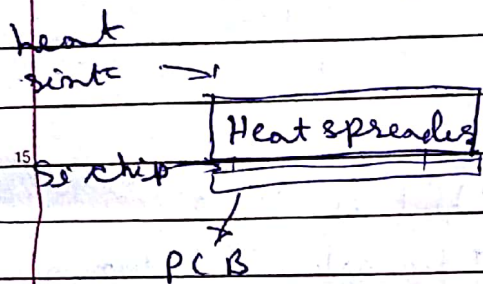 heat
sink
Heat spreader
15
Si chip
PCB